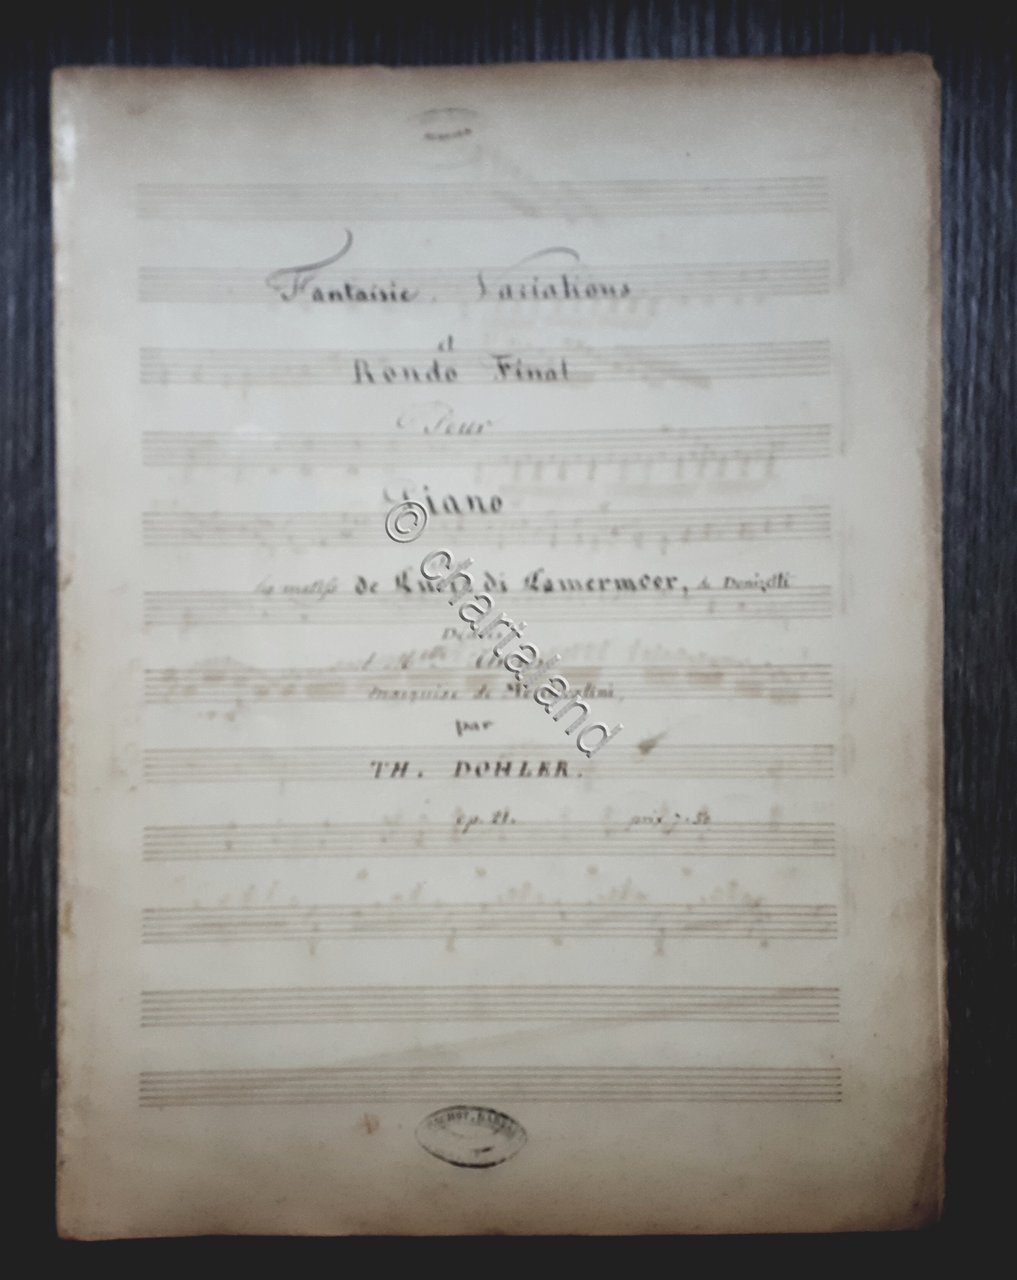 Fantaisie, Variations
et
Rondo Final
Pour
Piano
de Lucia di Lamermoer, de Donizetti
Dédiés
marquise de
par
TH. DOHLER.
op. 21. prix 7.50
© chartaland